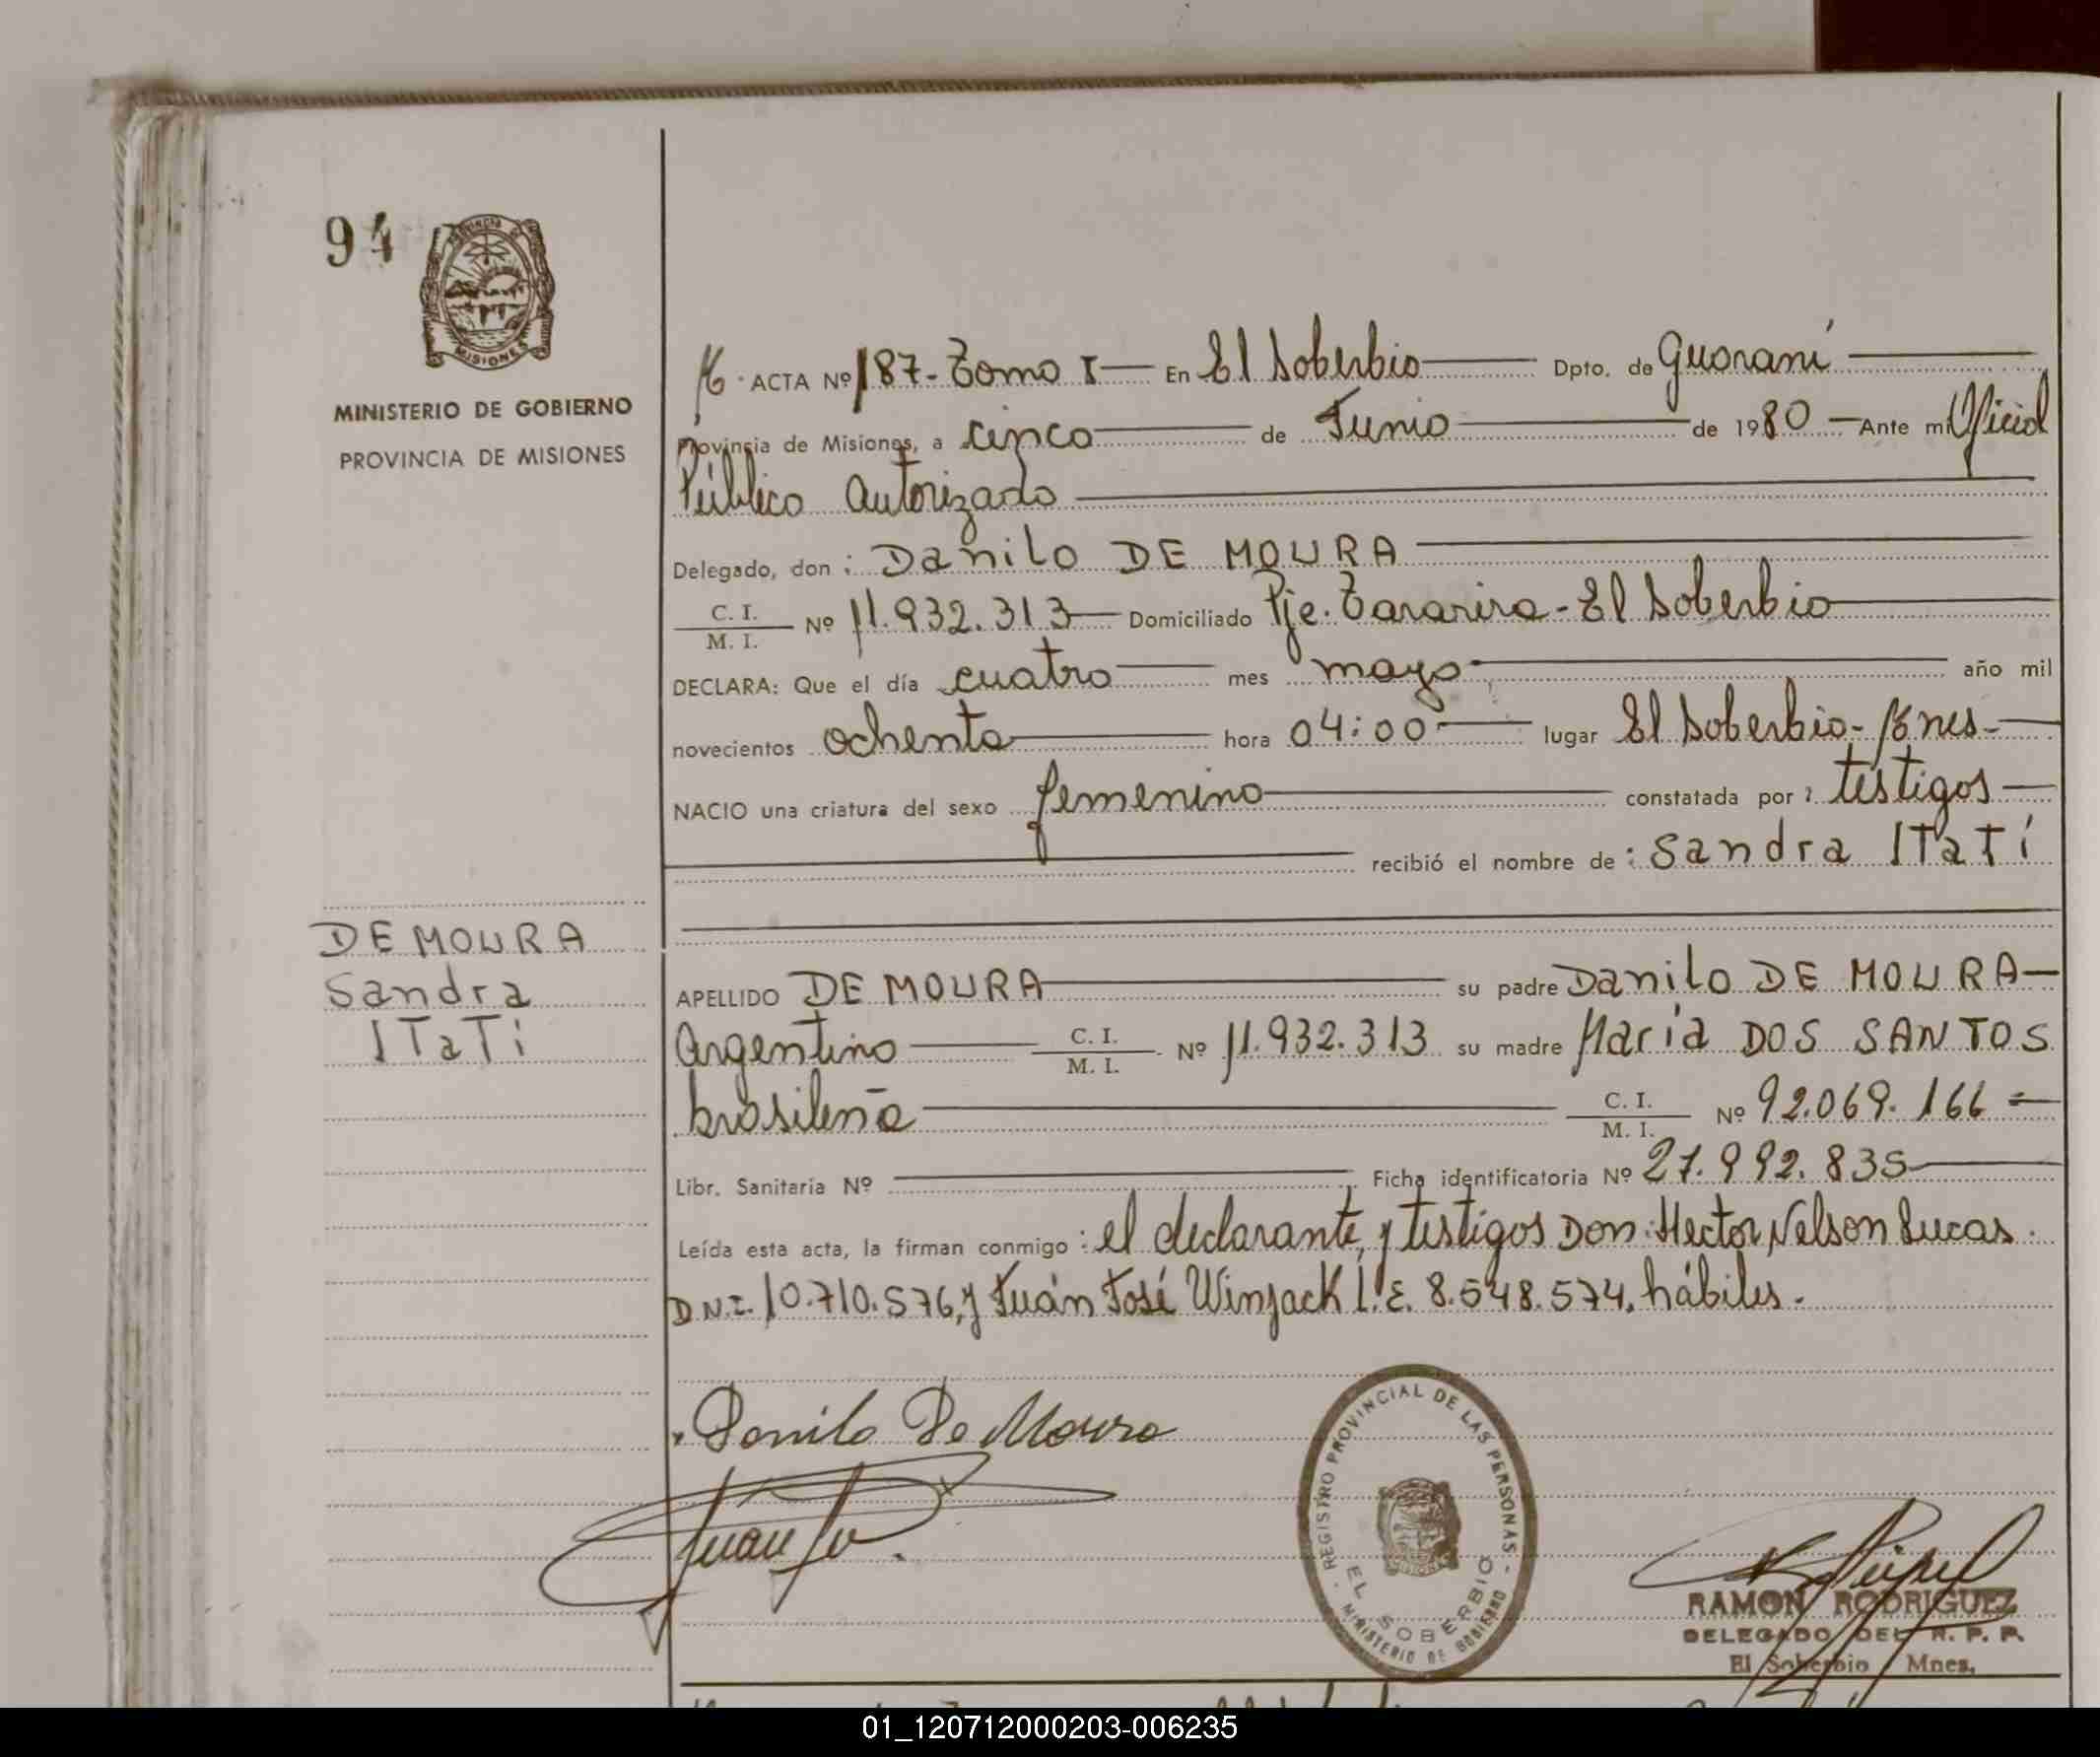 94
PROVINCIA DE
MISIONES
MINISTERIO DE GOBIERNO
PROVINCIA DE MISIONES
ACTA Nº 187- Tomo I — En El Soberbio — Dpto. de Guaraní —
Provincia de Misiones, a cinco — de Junio — de 1980 — Ante mi Oficial
Público Autorizado —
Delegado, don : Danilo DE MOURA —
C. I.
M. I. Nº 11.932.313 — Domiciliado Pje. Tararira - El Soberbio —
DECLARA: Que el día cuatro — mes mayo — año mil
novecientos ochenta — hora 04:00 — lugar El Soberbio - Mnes —
NACIO una criatura del sexo femenino — constatada por : testigos —
— recibió el nombre de : Sandra ITaTí
DE MOURA
Sandra
ITaTi
APELLIDO DE MOURA — su padre Danilo DE MOURA —
Argentino — C. I. M. I. Nº 11.932.313 su madre María DOS SANTOS
brasileña — C. I. M. I. Nº 92.069.166 =
Libr. Sanitaria Nº — Ficha identificatoria Nº 27.992.835 —
Leída esta acta, la firman conmigo : el declarante, y testigos Don: Hector Nelson Lucas.
D.N.I. 10.710.576, y Juán José Winjack L.E. 8.548.574, hábiles.
Danilo De Moura
REGISTRO PROVINCIAL DE LAS PERSONAS
EL SOBERBIO
MINISTERIO DE GOBIERNO
RAMON RODRIGUEZ
DELEGADO DEL R. P. P.
El Soberbio Mnes.
01_120712000203-006235